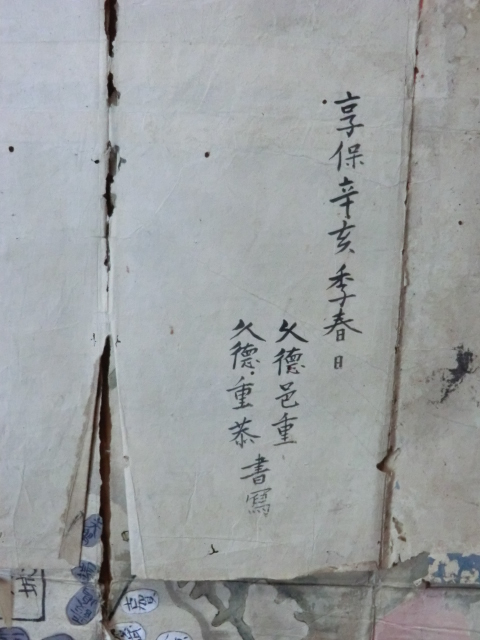 享保辛亥季春日
久德邑重
久德重恭
書寫